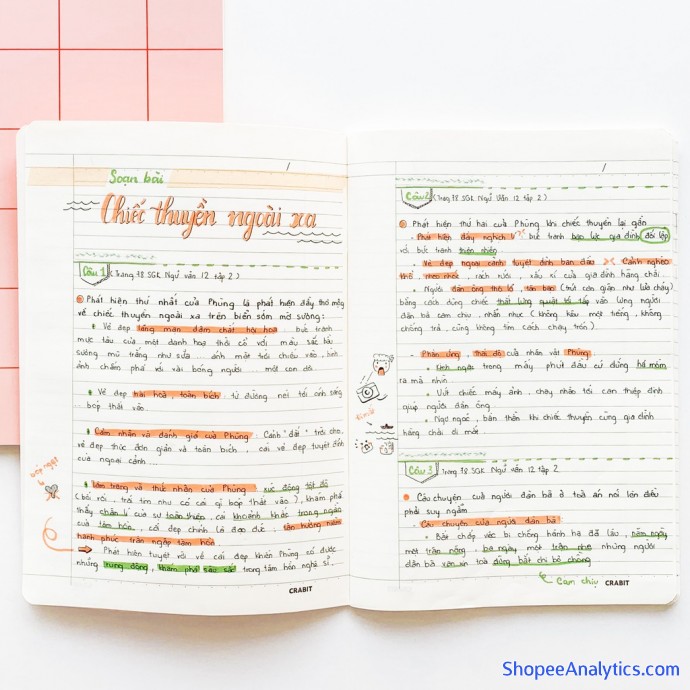 Soạn bài
Chiếc thuyền ngoài xa
Câu 1 (Trang 78 SGK Ngữ văn 12 tập 2)
Phát hiện thứ nhất của Phùng là phát hiện đầy thơ mộng
về chiếc thuyền ngoài xa trên biển sớm mờ sương:
Vẻ đẹp lãng mạn đậm chất hội họa: bức tranh
mực tàu của một danh họa thời cổ với màu sắc bầu
sương mù trắng như sữa ... ánh mặt trời chiếu vào, hình
ảnh chấm phá với vài bóng người ... một con dơi...
Vẻ đẹp hài hoà, toàn bích: từ đường nét tới ánh sáng
... bóp thắt vào...
Cảm nhận và đánh giá của Phùng: Cảnh "đắt" trời cho,
vẻ đẹp thực đơn giản và toàn bích, cái vẻ đẹp tuyệt đỉnh
của ngoại cảnh...
Tâm trạng và thức nhận của Phùng: xúc động tột độ
(bối rối, trái tim như có cái gì bóp thắt vào), khám phá
thấy chân lí của sự toàn thiện, cái khoảnh khắc trong ngần
của tâm hồn, cái đẹp chính là đạo đức, tận hưởng niềm
hạnh phúc tràn ngập tâm hồn.
Phát hiện tuyệt vời về cái đẹp khiến Phùng có được
những rung động, khám phá sâu sắc trong tâm hồn nghệ sĩ.
CRABIT
Câu 2 (Trang 78 SGK Ngữ Văn 12 tập 2)
Phát hiện thứ hai của Phùng khi chiếc thuyền lại gần
- Phát hiện đầy nghịch lí: bức tranh bạo lực gia đình đối lập
với bức tranh thiên nhiên
- Vẻ đẹp ngoại cảnh tuyệt đỉnh ban đầu >< Cảnh nghèo
khổ, nheo nhóc, rách rưới, xấu xí của gia đình hàng chài.
- Người đàn ông thô lỗ, tàn bạo (trút cơn giận như lửa cháy)
bằng cách dùng chiếc thắt lưng quật tới tấp vào lưng người
đàn bà cam chịu, nhẫn nhục (không kêu một tiếng, không
chống trả, cũng không tìm cách chạy trốn).
- Phản ứng, thái độ của nhân vật Phùng:
Kinh ngạc trong mấy phút đầu cứ đứng há mồm
ra mà nhìn
Vứt chiếc máy ảnh, chạy nhào tới can thiệp định
giúp người đàn ông.
Ngơ ngác, bần thần khi chiếc thuyền cùng gia đình
hàng chài đi mất.
Câu 3 Trang 78 SGK Ngữ Văn 12 tập 2
Câu chuyện của người đàn bà ở toà án nói lên điều
phải suy ngẫm
- Câu chuyện của người đàn bà:
Bất chấp việc bị chồng hành hạ đã lâu, năm ngày
một trận nặng, ba ngày một trận nhẹ nhưng người
đàn bà van xin toà đừng bắt chị bỏ chồng
Cam chịu
CRABIT
ShopeeAnalytics.com